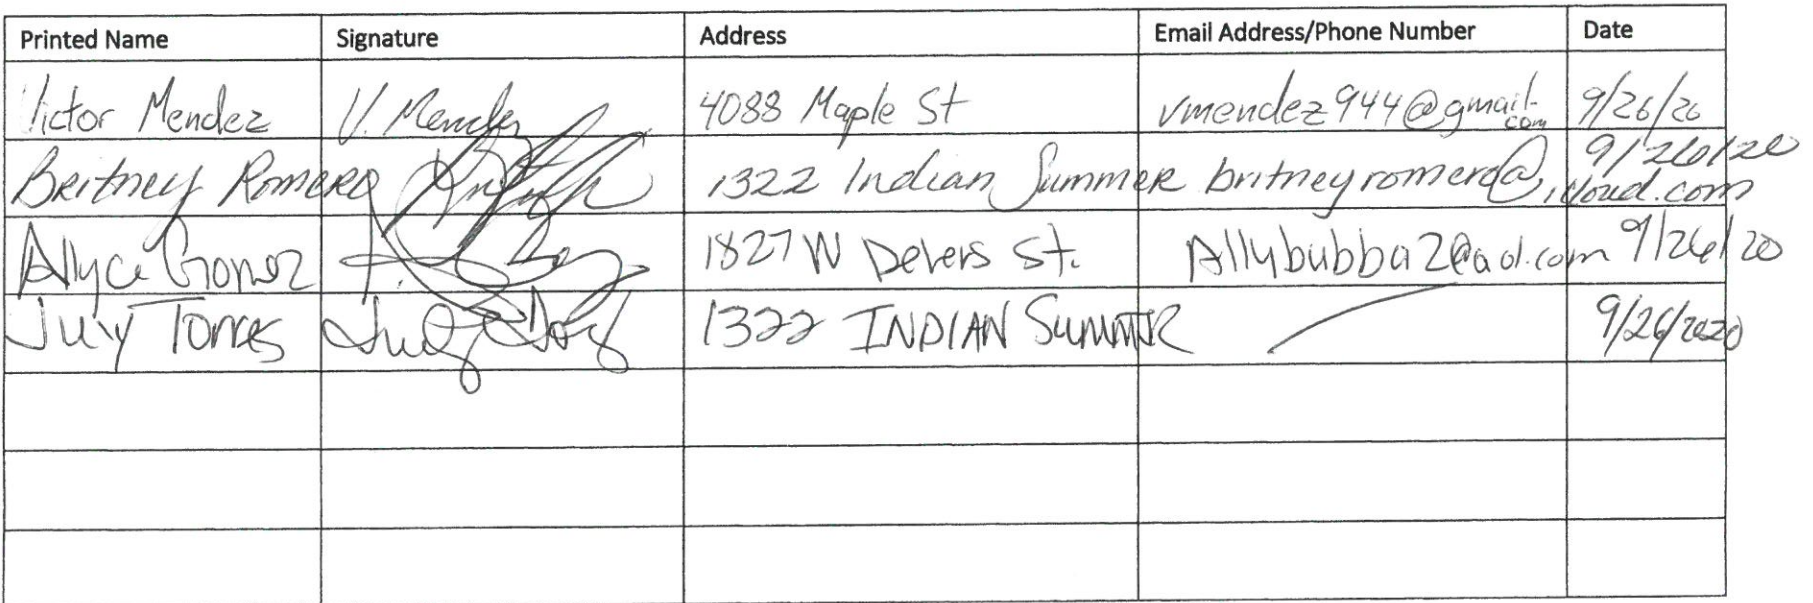 Printed Name Signature Address Email Address/Phone Number Date
Victor Mendez V. Mendez 4088 Maple St vmendez944@gmail.com 9/26/20
Britney Romero 1322 Indian Summer britneyromero@icloud.com 9/26/20
Allyce Gomez 1827 W Devers St. Allybubba2@aol.com 9/26/20
Torres 1322 INDIAN SUMMER 9/26/2020